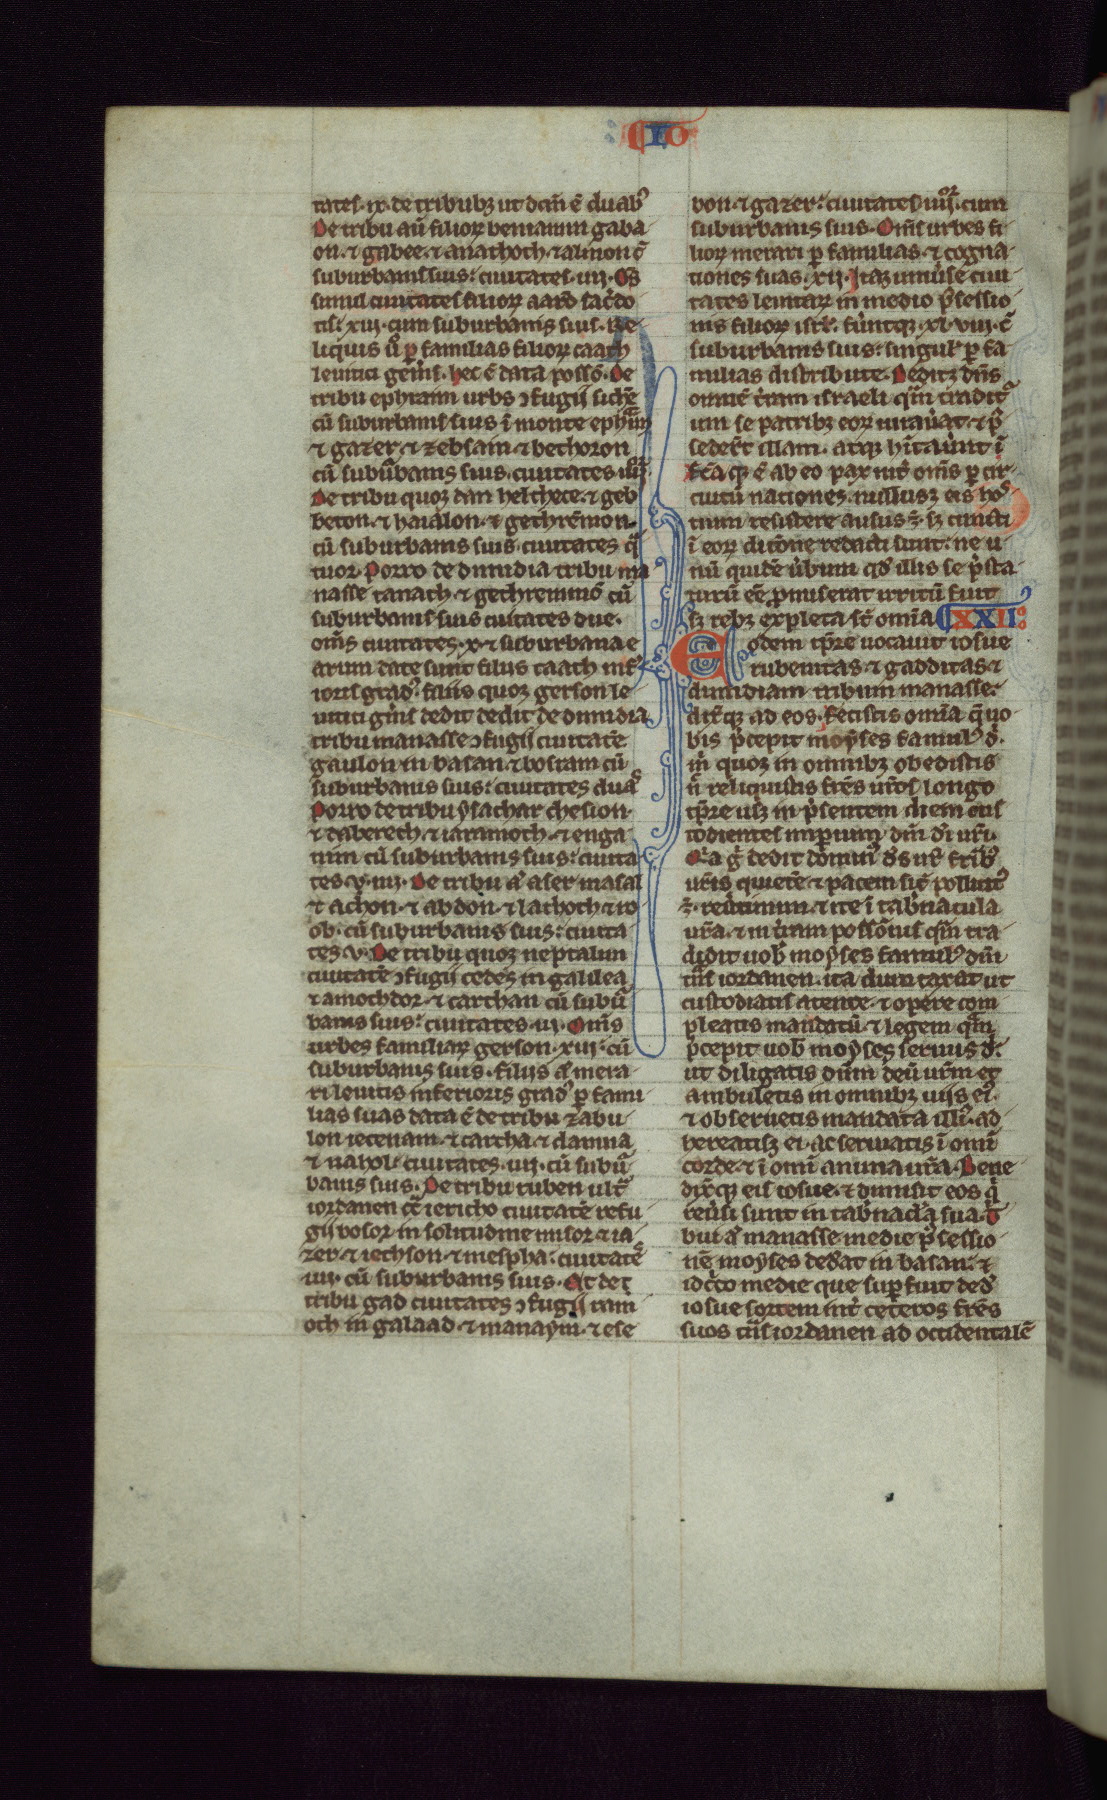 IO
tates·ix·de tribubꝫ ut dcm̄ ē duabꝰ
De tribu aū filioꝝ beniamin gaba
on·⁊ gabee·⁊ anathoth·⁊ almon c̄
suburbanis suis: ciuitates·iiij·Oēs
simul ciuitates filioꝝ aarō sac̄do
tis: xiij·cum suburbanis suis·Re
liquis ū̓ ꝑ familias filioꝝ caath
leuitici gen̄is·hec ē data poss̄o·De
tribu ephraim urbs ↄfugij sichē
cū suburbanis suis ī monte ephraim
⁊ gazer·⁊ zebsaim·⁊ bethoron
cū suburbanis suis·ciuitates iiij
De tribu quoꝫ dan helthece·⁊ geb
beton·⁊ haialon·⁊ gethremon
cū suburbanis suis·ciuitates q̄
tuor·Porro de dimidia tribu ma
nasse tanach·⁊ gethremmō cū
suburbanis suis ciuitates due·
om̄s ciuitates·x·⁊ suburbana e
arum date sunt filiis caath inf̄
ioris gradꝰ·filiis quoꝫ gerson le
uitici gn̄is dedit dedit de dimidia
tribu manasse ↄfugij ciuitatē
gaulon in basan·⁊ bosram cū
suburbanis suis: ciuitates duas
Porro de tribu ysachar chesion·
⁊ daberech·⁊ iaramoth·⁊ enga
nim cū suburbanis suis: ciuita
tes·iiij·De tribu aū aser masal
⁊ achon·⁊ abdon·⁊ lathoth·⁊ ro
ob·cū suburbanis suis: ciuita
tes·v·De tribu quoꝫ neptalim
ciuitatē ↄfugij cedes in galilea
⁊ amothdor·⁊ carthan cū subur̄
banis suis: ciuitates·iij·Om̄s
urbes familiaꝝ gerson·xiij·cū
suburbanis suis·filiis aū mera
ri leuitis inferioris gradꝰ ꝑ fami
lias suas data ē de tribu zabu
lon iecenam·⁊ cartha·⁊ damna
⁊ nahol·ciuitates·iiij·cū subur̄
banis suis·De tribu ruben ult̄
iordanen cͣ iericho ciuitatē refu
gij bosor in solitudine misor·⁊ ia
zer·⁊ iethson·⁊ mespha: ciuitatē
iiij·cū suburbanis suis·Et de
tribu gad ciuitates ↄfugij ram
oth in galaad·⁊ manaym·⁊ ese
bon·⁊ gazer: ciuitates iiij·cum
suburbanis suis·Om̄s urbes fi
lioꝝ merari ꝑ familias·⁊ cogna
tiones suas·xij·Itaꝫ uniu̓se ciui
tates leuitaꝝ in medio p̄sessio
nis filioꝝ isrl̄·fūntqꝫ·xlviij·c̄
suburbanis suis: singule ꝑ fa
milias distribute·Deditqꝫ dn̄s
omnē t̄ram israeli qͣm traditur
um se patribꝫ eoꝝ iurau̓at·⁊ p̄
sederūt illam·atqꝫ hītau̓unt ī
ea·f̄caqꝫ ē ab eo pax int̄ om̄s ꝑ cir
cuitū nationes·nullusqꝫ eis hos
tium resistere ausus ē·sꝫ cuncti
ī eoꝝ ditōne redacti sunt·ne u
nū quidē u̓bum qd̓ illis se p̄sta
turū eē ꝓmiserat irritū fuit
sꝫ rebꝫ expleta st̄ omn̄ia XXII
Eodem tp̄re uocauit iosue
rubenitas·⁊ gadditas·⁊
dimidiam tribum manasse·
dixitqꝫ ad eos·fecistis omn̄ia q̄ uo
bis p̄cepit moyses famulꝰ d̄·
m̄ quoꝫ in omnibꝫ obedistis
n̄ reliquistis frēs ūr̄os longo
tp̄re usqꝫ in p̄sentem diem cus
todientes imꝑium dn̄i di ur̄i·
Quia g̊ dedit dominꝰ d̄s ur̄ frībꝰ
ur̄is quietē·⁊ pacem sic pollicitꝰ
ē·reu̓timini·⁊ ite ī tab̓nacula
ur̄a·⁊ in t̄ram poss̄onis qͣm tra
didit uob̄ moyses famulꝰ dn̄i
tn̄s iordanen·ita dum taxat ut
custodiatis atente·⁊ opere com
pleatis mandatū·⁊ legem qͣm
p̄cepit uob̄ moyses seruus d̄·
ut diligatis dn̄m deū ur̄m et
ambuletis in omnibꝫ uiis eiꝰ
⁊ obseruetis mandata illiꝰ·ad
hereatisqꝫ ei·ac seruiatis ī omī
corde·⁊ ī omī anima ur̄a·Bene
dixitqꝫ eis iosue·⁊ dimisit eos q̄
reu̓si sunt in tab̓nac̄la sua·T̄
bui aū manasse medie p̄sessio
nē moyses ded̓at in basan·⁊
idc̄co medie que suꝑfuit dedꝰ
iosue sortem int̄ ceteros frēs
suos tn̄s iordanen ad occidentalē